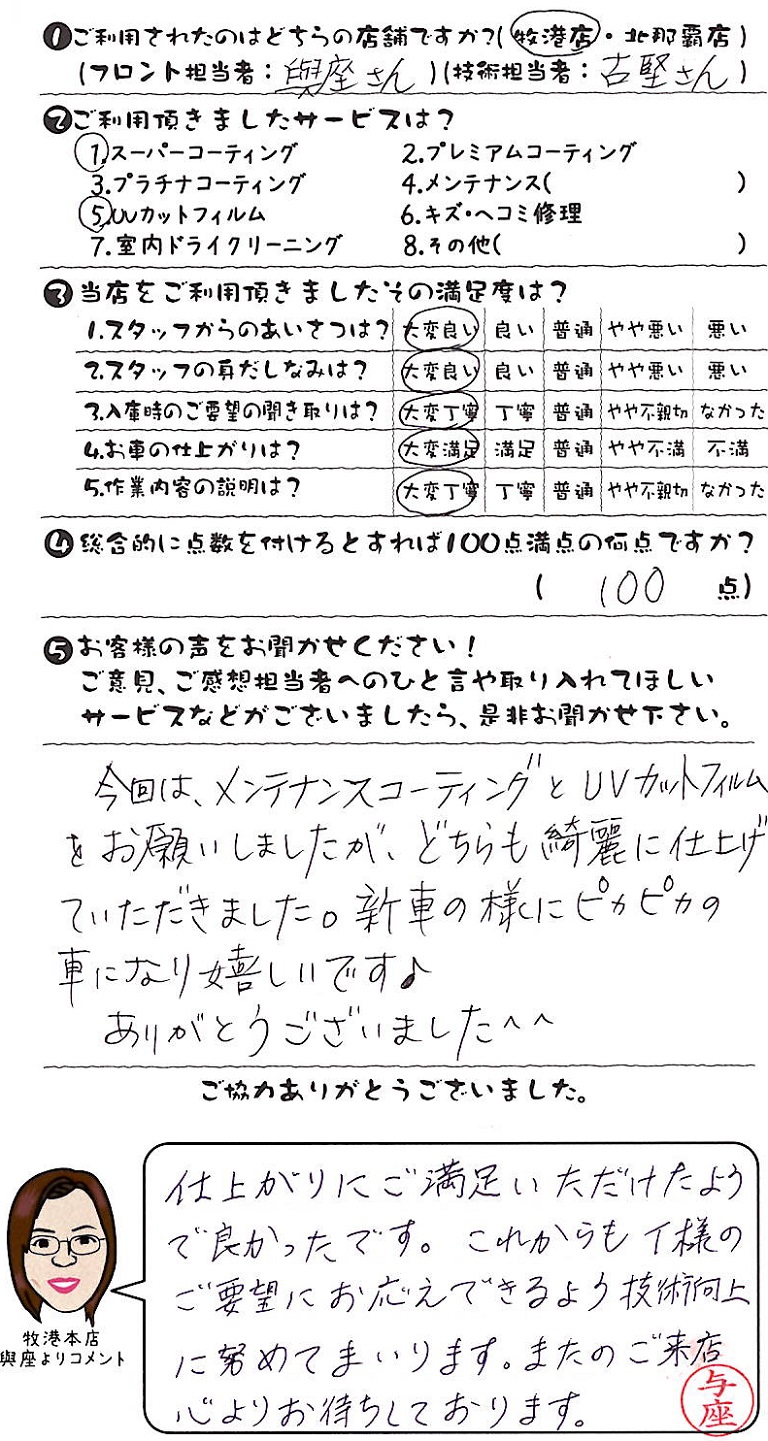 ❶ご利用されたのはどちらの店舗ですか?(牧港店・北那覇店)
(フロント担当者:與座さん)(技術担当者:古堅さん)
❷ご利用頂きましたサービスは?
1.スーパーコーティング 2.プレミアムコーティング
3.プラチナコーティング 4.メンテナンス( )
5.UVカットフィルム 6.キズ・ヘコミ修理
7.室内ドライクリーニング 8.その他( )
❸当店をご利用頂きましたその満足度は?
1.スタッフからのあいさつは? 大変良い 良い 普通 やや悪い 悪い
2.スタッフの身だしなみは? 大変良い 良い 普通 やや悪い 悪い
3.入庫時のご要望の聞き取りは? 大変丁寧 丁寧 普通 やや不親切 なかった
4.お車の仕上がりは? 大変満足 満足 普通 やや不満 不満
5.作業内容の説明は? 大変丁寧 丁寧 普通 やや不親切 なかった
❹総合的に点数を付けるとすれば100点満点の何点ですか?
( 100 点)
❺お客様の声をお聞かせください!
ご意見、ご感想担当者へのひと言や取り入れてほしい
サービスなどがございましたら、是非お聞かせ下さい。
今回は、メンテナンスコーティングとUVカットフィルム
をお願いしましたが、どちらも綺麗に仕上げ
ていただきました。新車の様にピカピカの
車になり嬉しいです♪
ありがとうございました^^
ご協力ありがとうございました。
仕上がりにご満足いただけたよう
で良かったです。これからもイ様の
ご要望にお応えできるよう技術向上
に努めてまいります。またのご来店
心よりお待ちしております。
与座
牧港本店
與座よりコメント